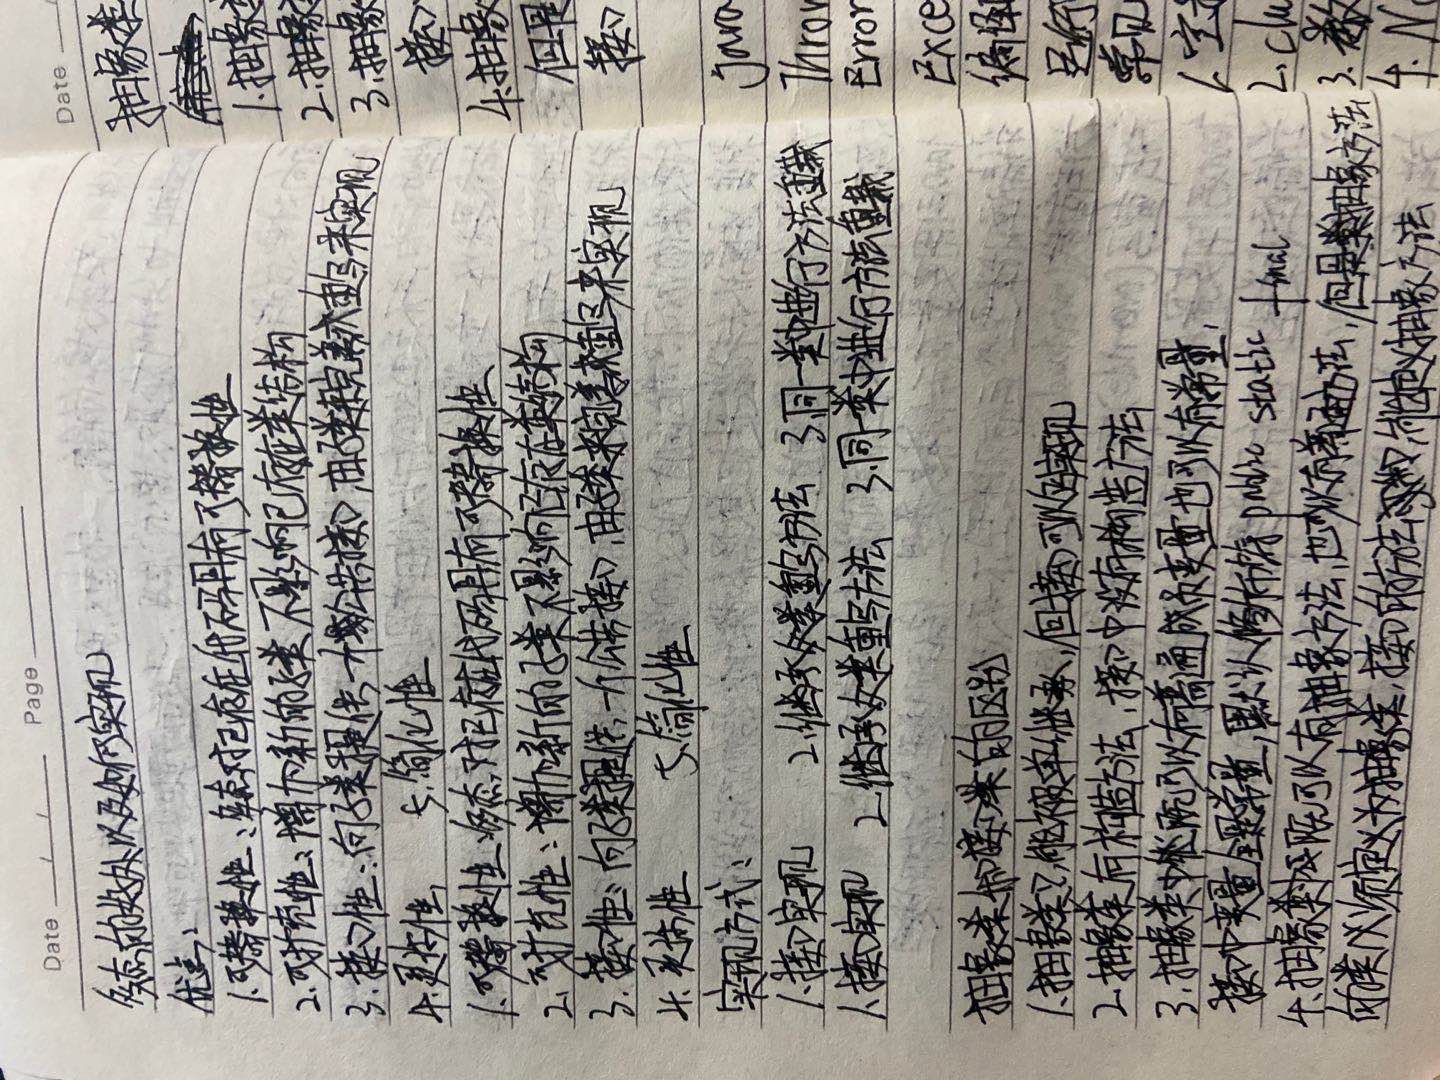 Date / / Page
多态的好处以及如何实现
优点:
1.可替换性:多态对已存在代码具有可替换性
2.可扩充性:增加新的子类不影响已存在类结构
3.接口性:向子类提供一个公共接口,由子类来完善或重写来实现
4.灵活性 5.简化性
1.可替换性:多态对已存在代码具有可替换性
2.可扩充性:增加新的子类不影响已存在类结构
3.接口性:向子类提供一个公共接口,由子类来完善或重写来实现
4.灵活性 5.简化性
实现方式:
1.接口实现 2.继承父类重写方法 3.同一类中进行方法重载
1.接口实现 2.继承父类重写方法 3.同一类中进行方法重载
抽象类和接口类的区别
1.抽象类只能被单继承,但接口可以实现
2.抽象类有构造方法,接口中没有构造方法
3.抽象类中既可以有普通成员变量也可以有常量,
接口中变量全是常量,默认修饰符 public static final
4.抽象类中既可以有抽象方法,也可以有普通方法,但是抽象方法
的类必须定义为抽象类,接口的方法只能定义抽象方法
Date
抽象类
1.抽象
2.抽象
3.抽象
接口
4.抽象
但是
接口
java
Throw
Error
Exce
编译
运行
常见
1.空
2.clu
3.数
4.N